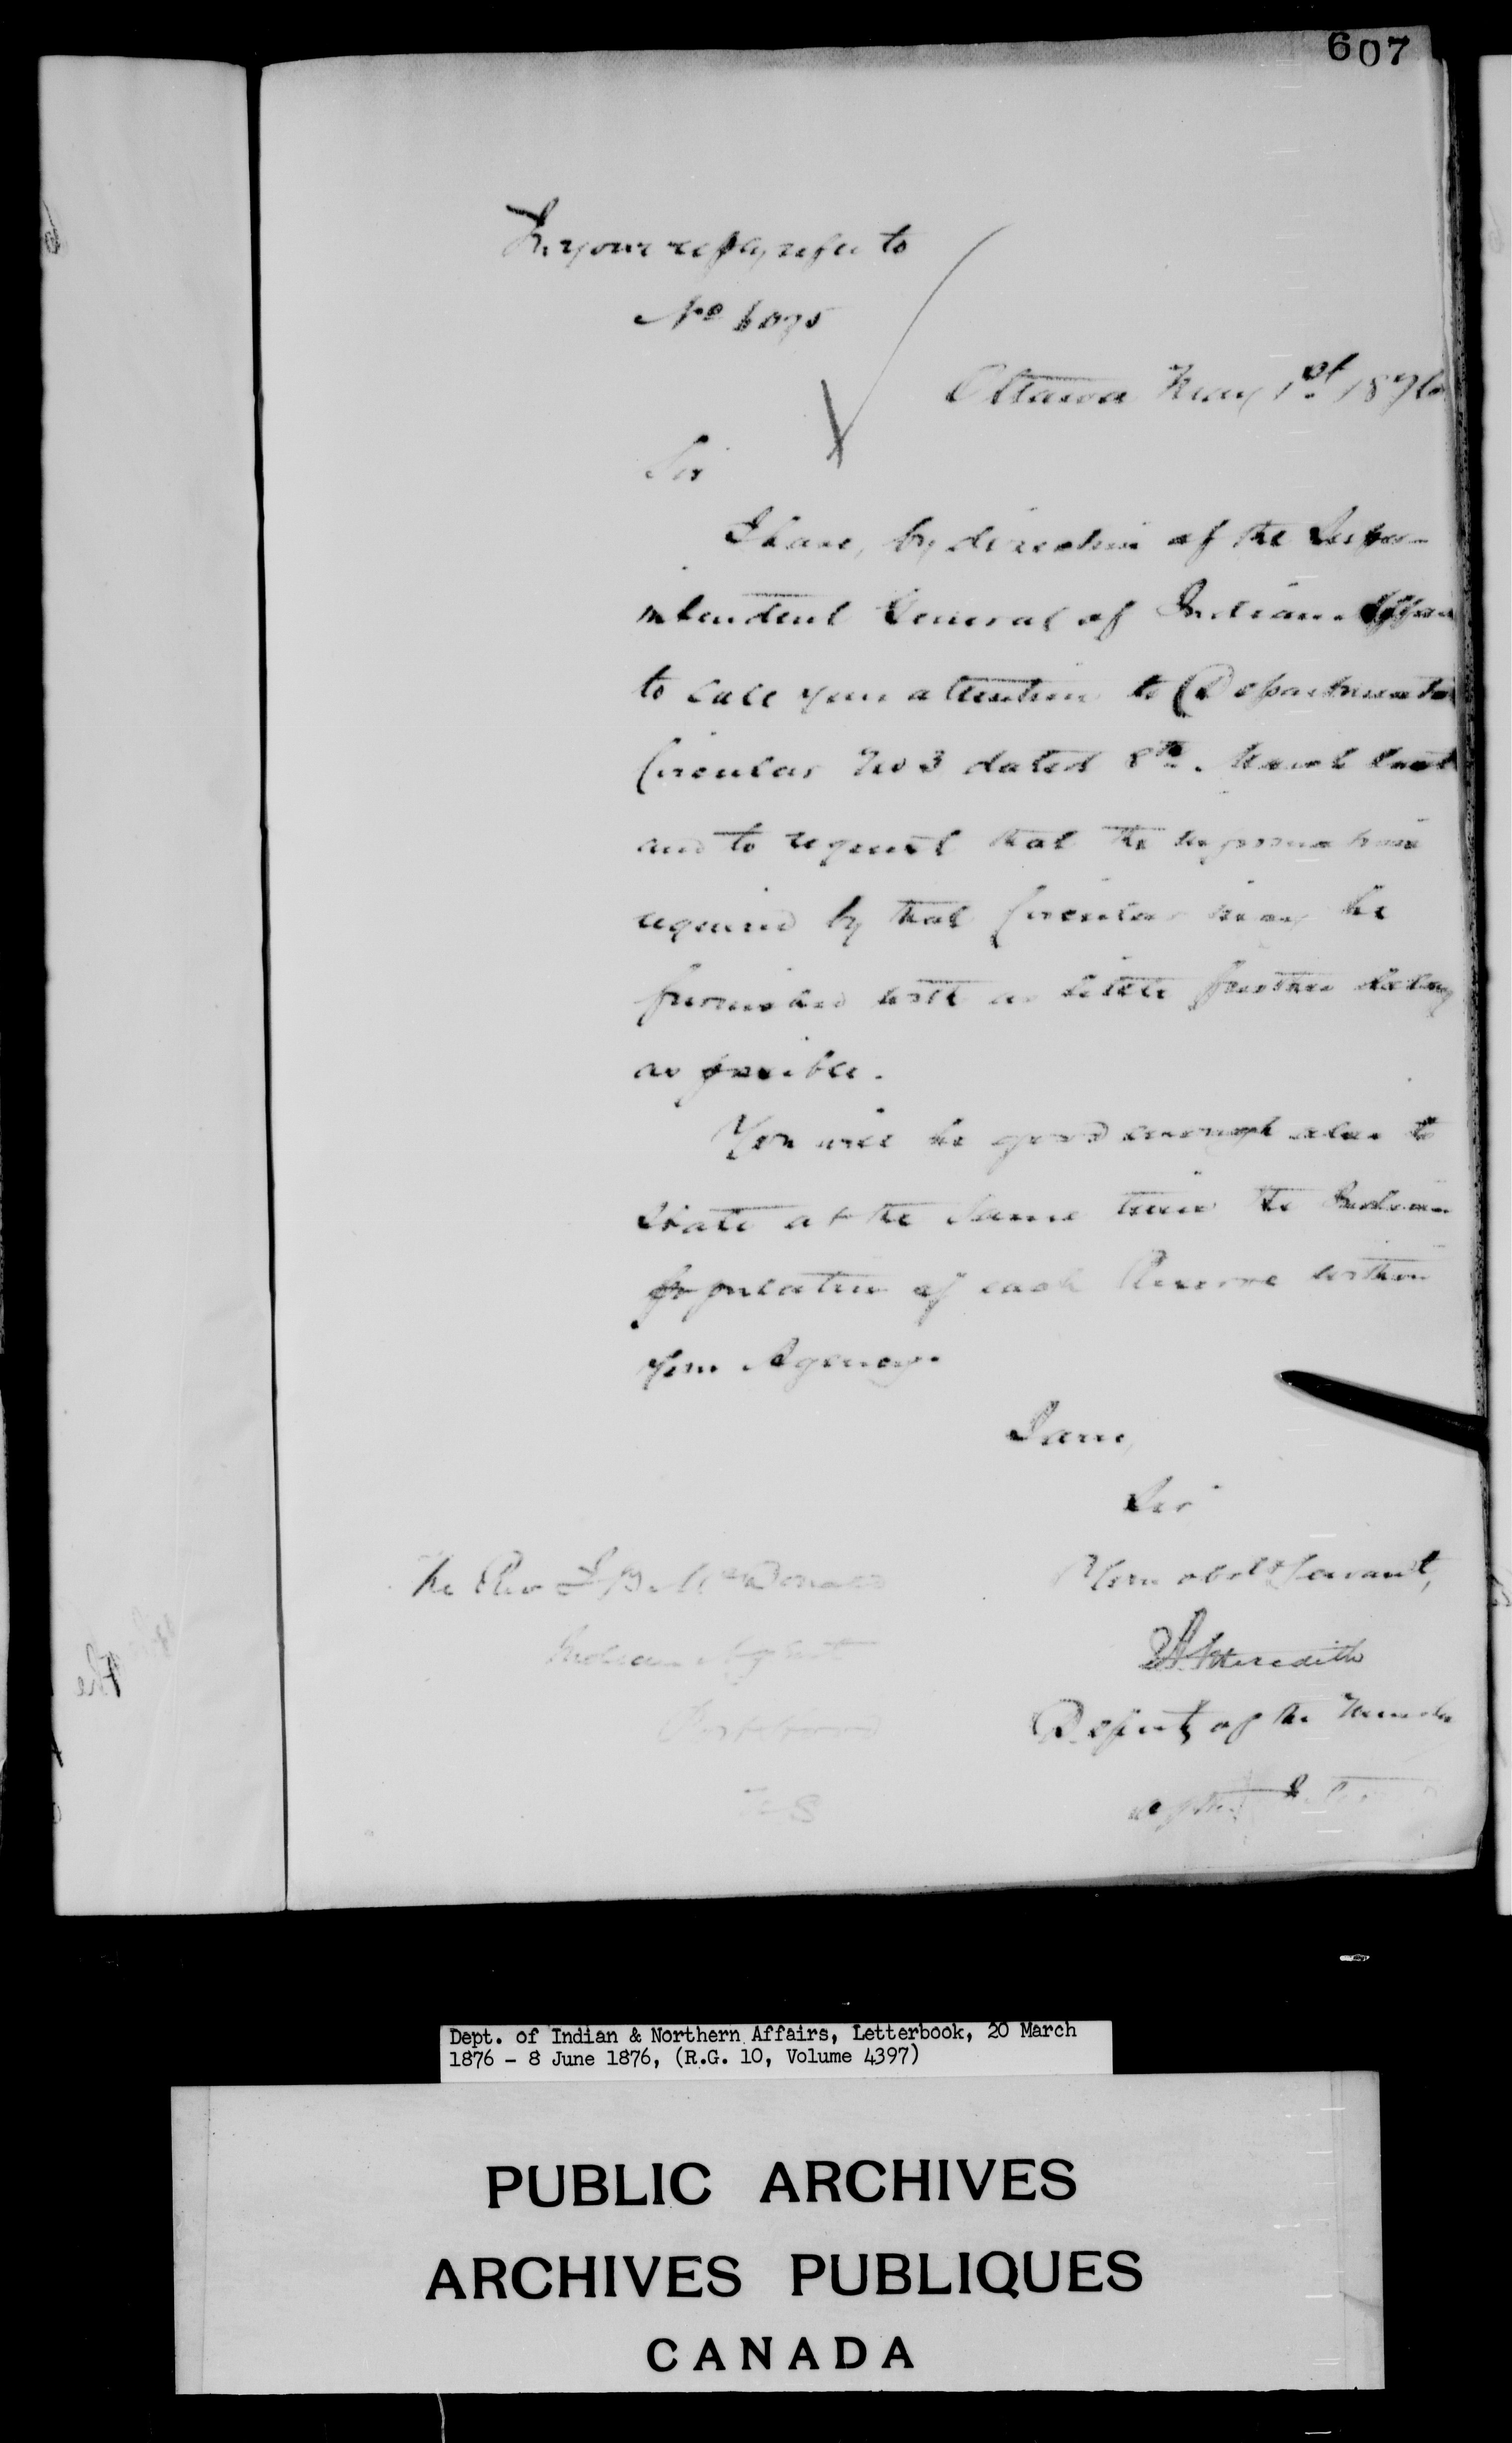 607
In your reply refer to
No 6075
Ottawa May 1st 1876
Sir
I have, by direction of the Super-
intendent General of Indian Affairs
to call your attention to Departmental
Circular No 3 dated 8th March last
and to request that the information
required by that Circular may be
furnished with as little further delay
as possible.
You will be good enough also to
state at the same time the Indian
population of each Reserve within
your Agency.
I am,
Sir
Your obdt Servant,
Meredith
Deputy of the Minister
of the
The Rev McDonald
Indian Agent
NS
The
Dept. of Indian & Northern Affairs, Letterbook, 20 March
1876 - 8 June 1876, (R.G. 10, Volume 4397)
PUBLIC ARCHIVES
ARCHIVES PUBLIQUES
CANADA